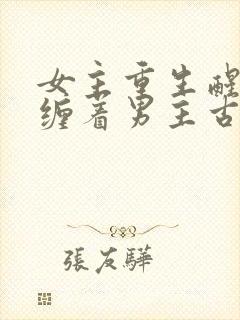 女主重生醒
缠着男主古
張友驊